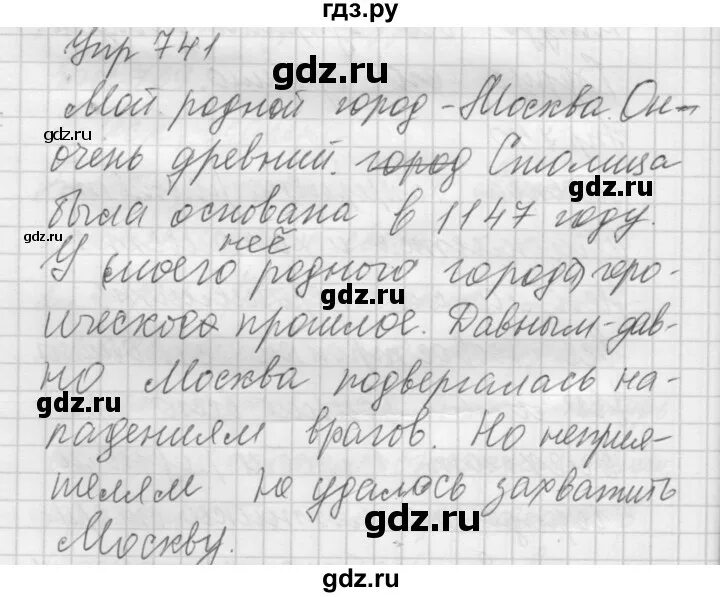 гдз.ру
Упр 741
gdz.ru
Мой родной город - Москва. Он -
gdz.ru
очень древний. город Столица
gdz.ru
была основана в 1147 году.
gdz.ru
неё
У (моего родного города) геро-
gdz.ru
ическое прошлое. Давным-дав-
но Москва подвергалась на-
gdz.ru
gdz.ru
падениям врагов. Но неприя-
телям не удалось захватить
gdz.ru
Москву.
gdz.ru